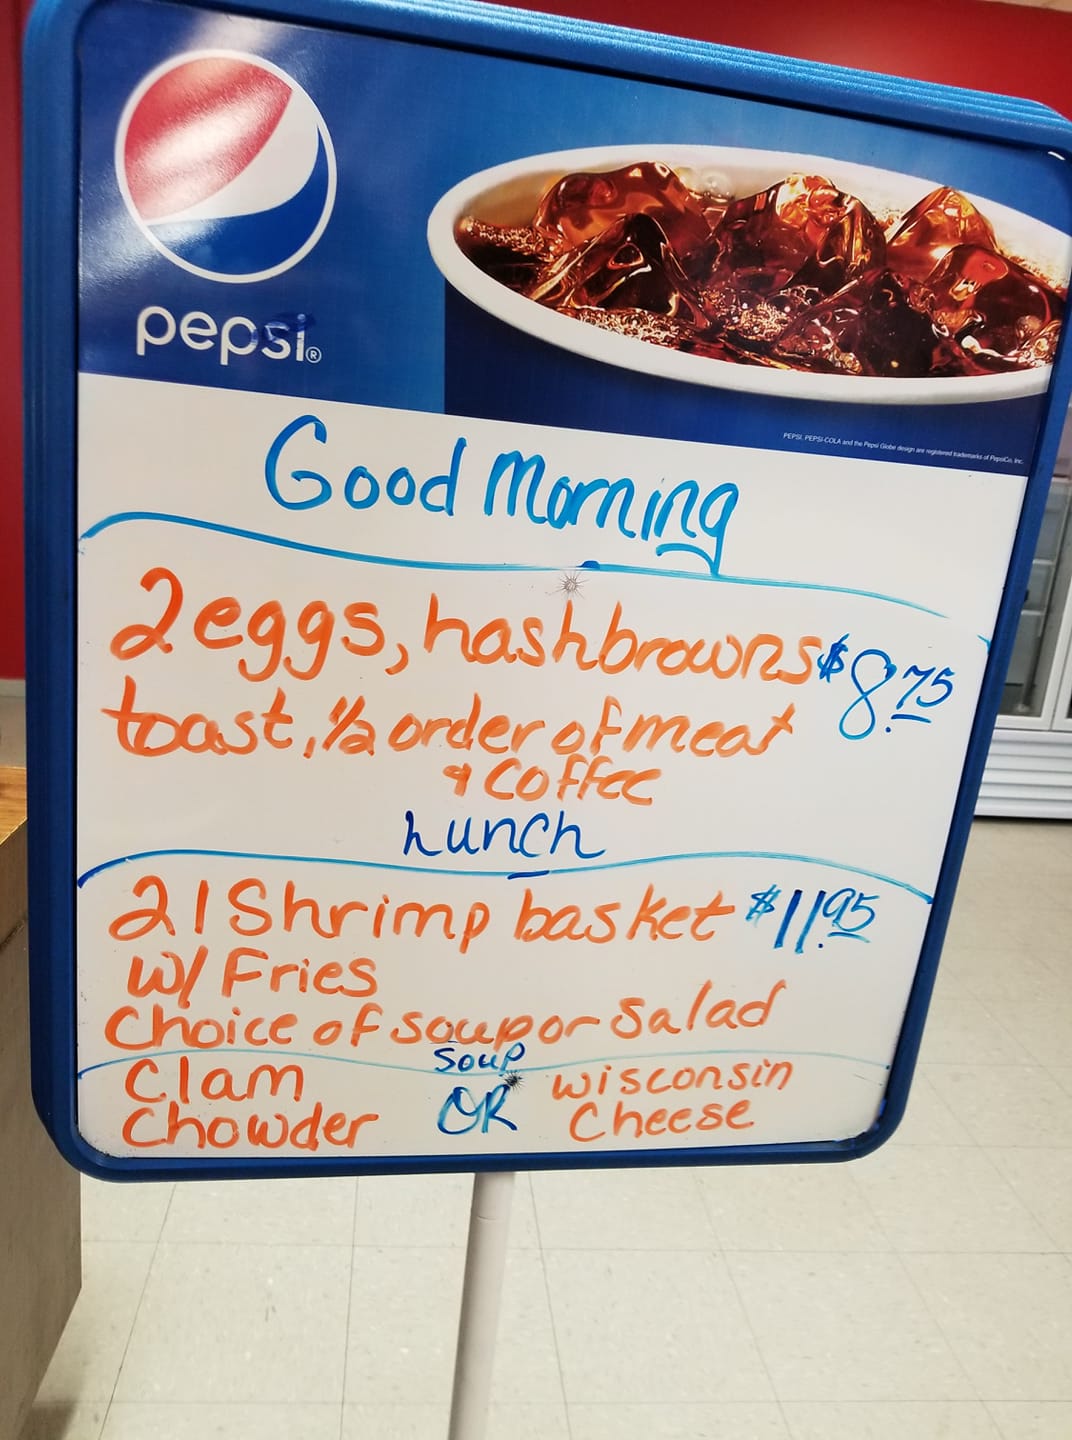 pepsi®
PEPSI, PEPSI-COLA and the Pepsi Globe design are registered trademarks of PepsiCo, Inc.
Good Morning
2 eggs, hashbrowns $8.75
toast, 1/2 order of meat
& Coffee
Lunch
21 Shrimp basket $11.95
w/ Fries
Choice of soup or Salad
Soup
Clam OR Wisconsin
Chowder Cheese